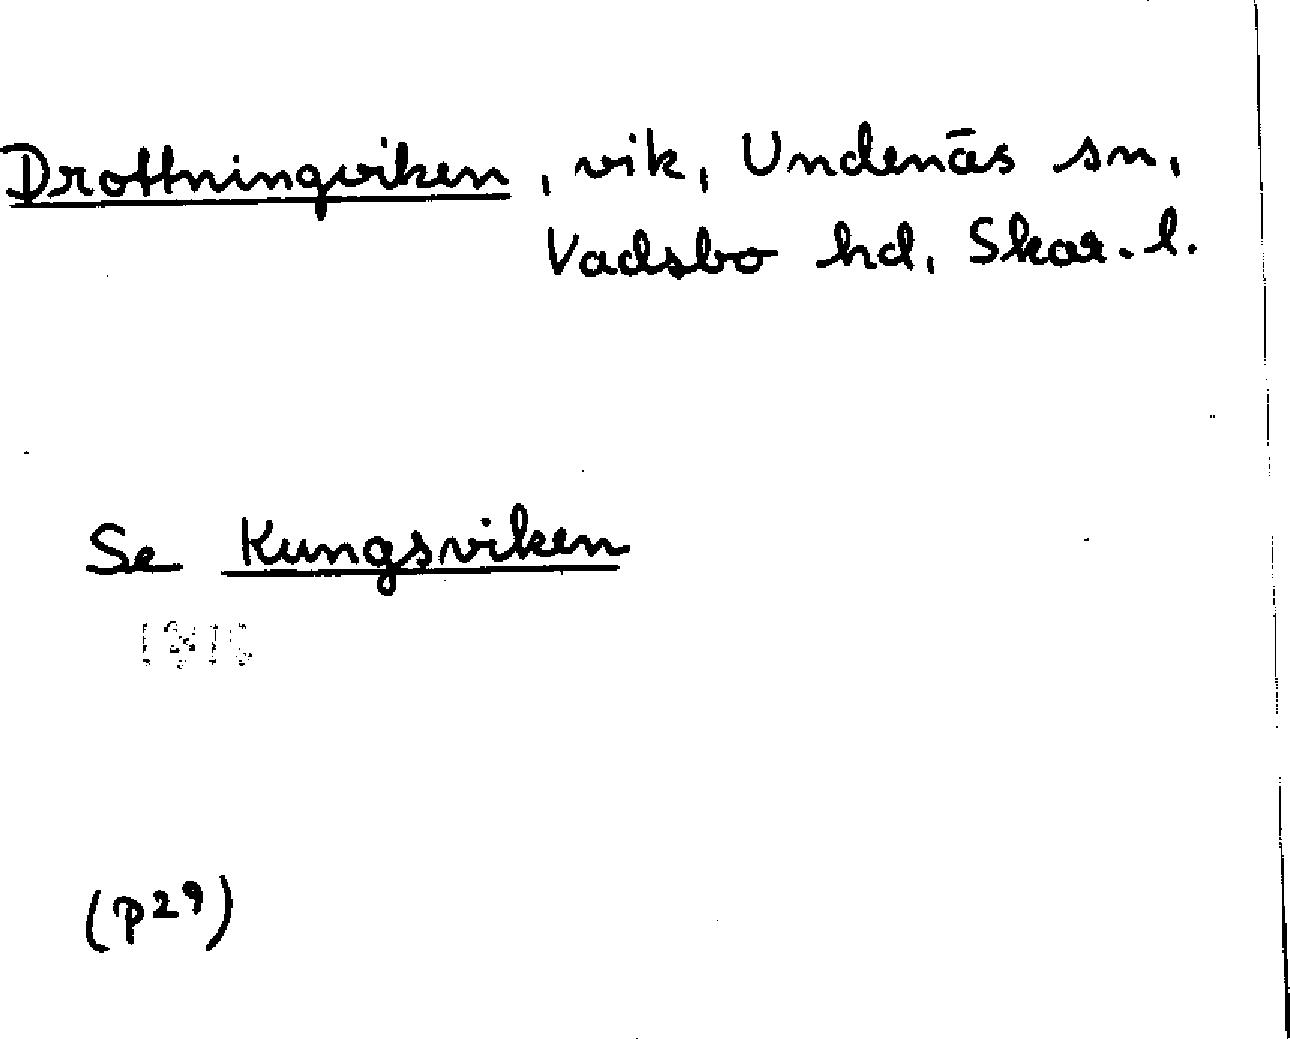 Drottningviken, vik, Undenäs sn,
Vadsbo hd, Skar. l.
Se Kungsviken
(p29)